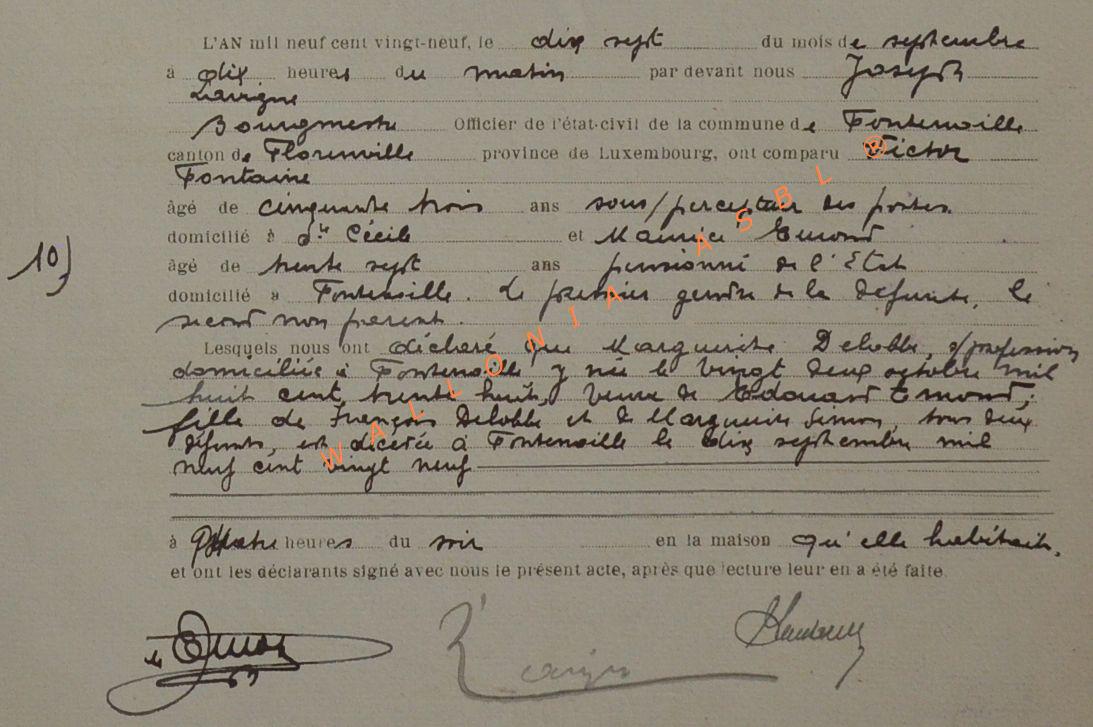 L'AN mil neuf cent vingt-neuf, le dix sept du mois de septembre
à dix heures du matin par devant nous Joseph
Lavigne
Bourgmestre Officier de l'état-civil de la commune de Fontenoille
canton de Florenville province de Luxembourg, ont comparu Victor
Fontaine
âgé de cinquante trois ans sous/percepteur des postes
domicilié à Ste Cécile et Maurice Emond
10)
âgé de trente sept ans pensionné de l'Etat
domicilié à Fontenoille. Le premier gendre de la défunte, le
second non parent.
Lesquels nous ont déclaré que Marguerite Delobbe, s/profession
domiciliée à Fontenoille y née le vingt deux octobre mil
huit cent trente huit, veuve de Edouard Emond,
fille de François Delobbe et de Marguerite Simon, tous deux
défunts, est décédée à Fontenoille le dix septembre mil
neuf cent vingt neuf
à Quatre heures du soir en la maison qu'elle habitait.
et ont les déclarants signé avec nous le présent acte, après que lecture leur en a été faite.
Emond
WALLONIA ASBL ®